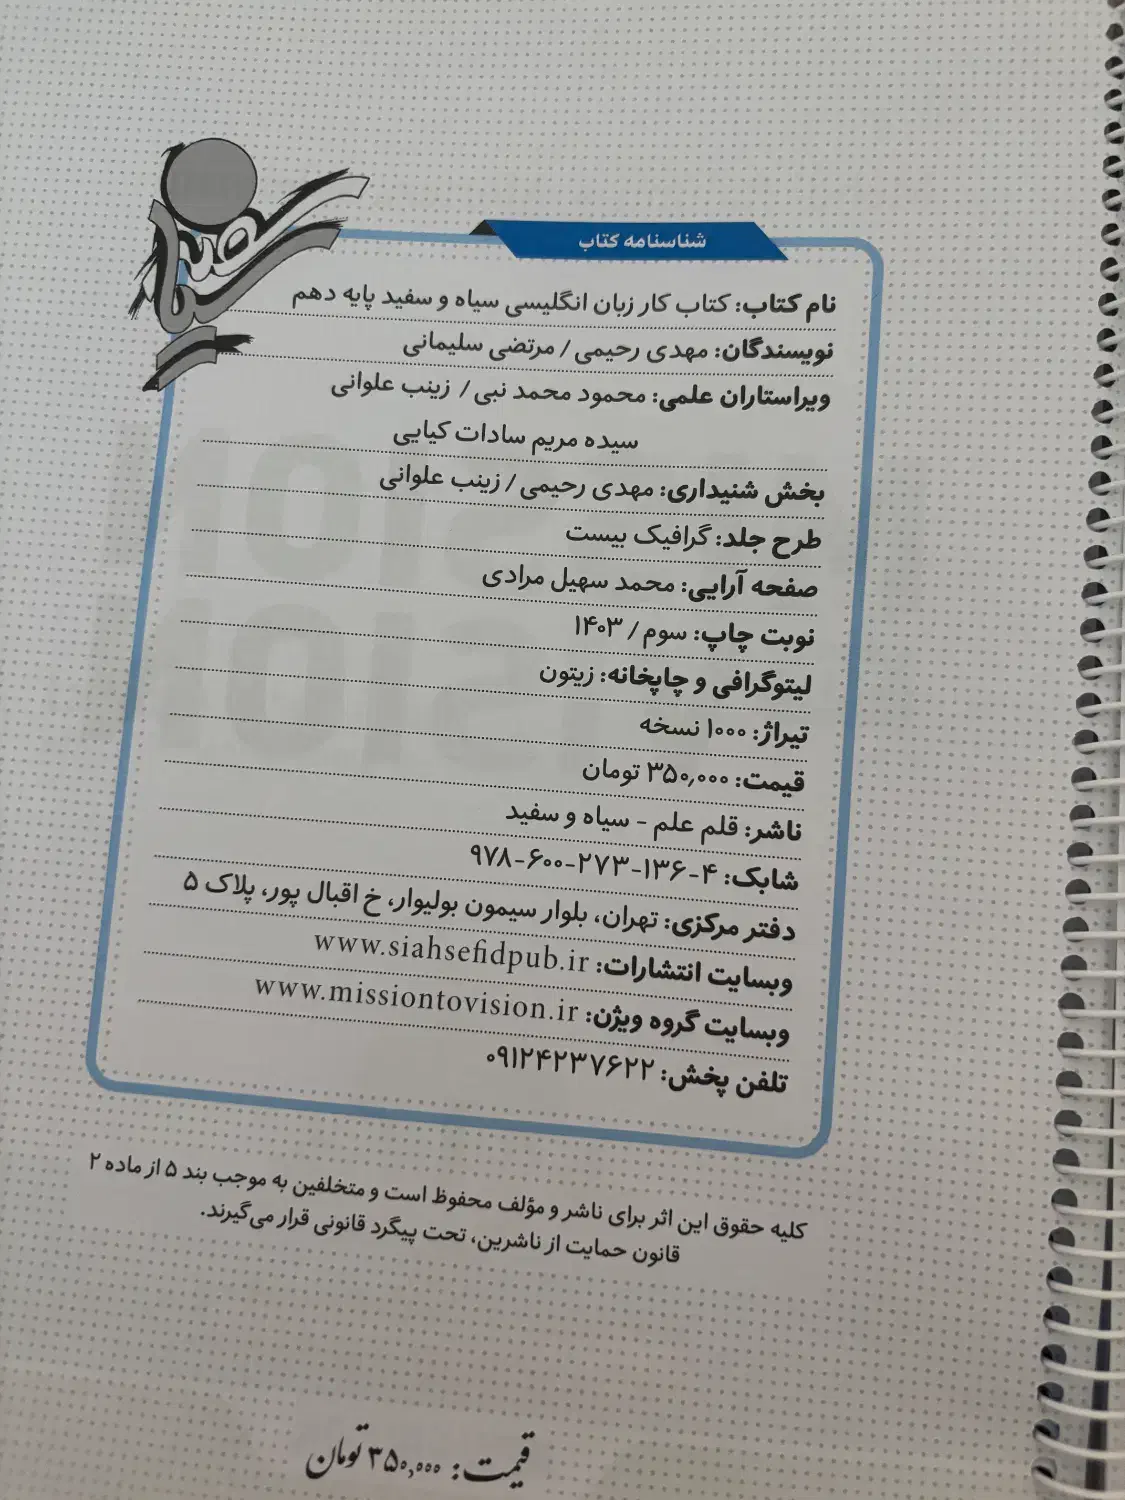 شناسنامه کتاب
نام کتاب: کتاب کار زبان انگلیسی سیاه و سفید پایه دهم
نویسندگان: مهدی رحیمی / مرتضی سلیمانی
ویراستاران علمی: محمود محمد نبی / زینب علوانی
سیده مریم سادات کیایی
بخش شنیداری: مهدی رحیمی / زینب علوانی
طرح جلد: گرافیک بیست
صفحه آرایی: محمد سهیل مرادی
نوبت چاپ: سوم / ۱۴۰۳
لیتوگرافی و چاپخانه: زیتون
تیراژ: ۱۰۰۰ نسخه
قیمت: ۳۵۰,۰۰۰ تومان
ناشر: قلم علم - سیاه و سفید
شابک: ۴-۱۳۶-۲۷۳-۶۰۰-۹۷۸
دفتر مرکزی: تهران، بلوار سیمون بولیوار، خ اقبال پور، پلاک ۵
وبسایت انتشارات: www.siahsefidpub.ir
وبسایت گروه ویژن: www.missiontovision.ir
تلفن پخش: ۰۹۱۲۴۲۳۷۶۲۲
کلیه حقوق این اثر برای ناشر و مؤلف محفوظ است و متخلفین به موجب بند ۵ از ماده ۲
قانون حمایت از ناشرین، تحت پیگرد قانونی قرار می‌گیرند.
قیمت: ۳۵۰,۰۰۰ تومان